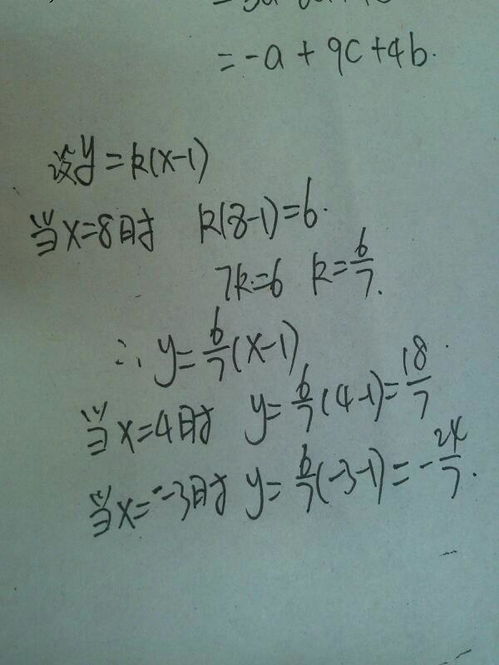 = -a + 9c + 4b.
设y = k(x-1)
当x=8时 k(8-1)=6.
7k=6 k=6/7.
∴ y=6/7(x-1)
当x=4时 y=6/7(4-1)=18/7
当x=-3时 y=6/7(-3-1)=-24/7.